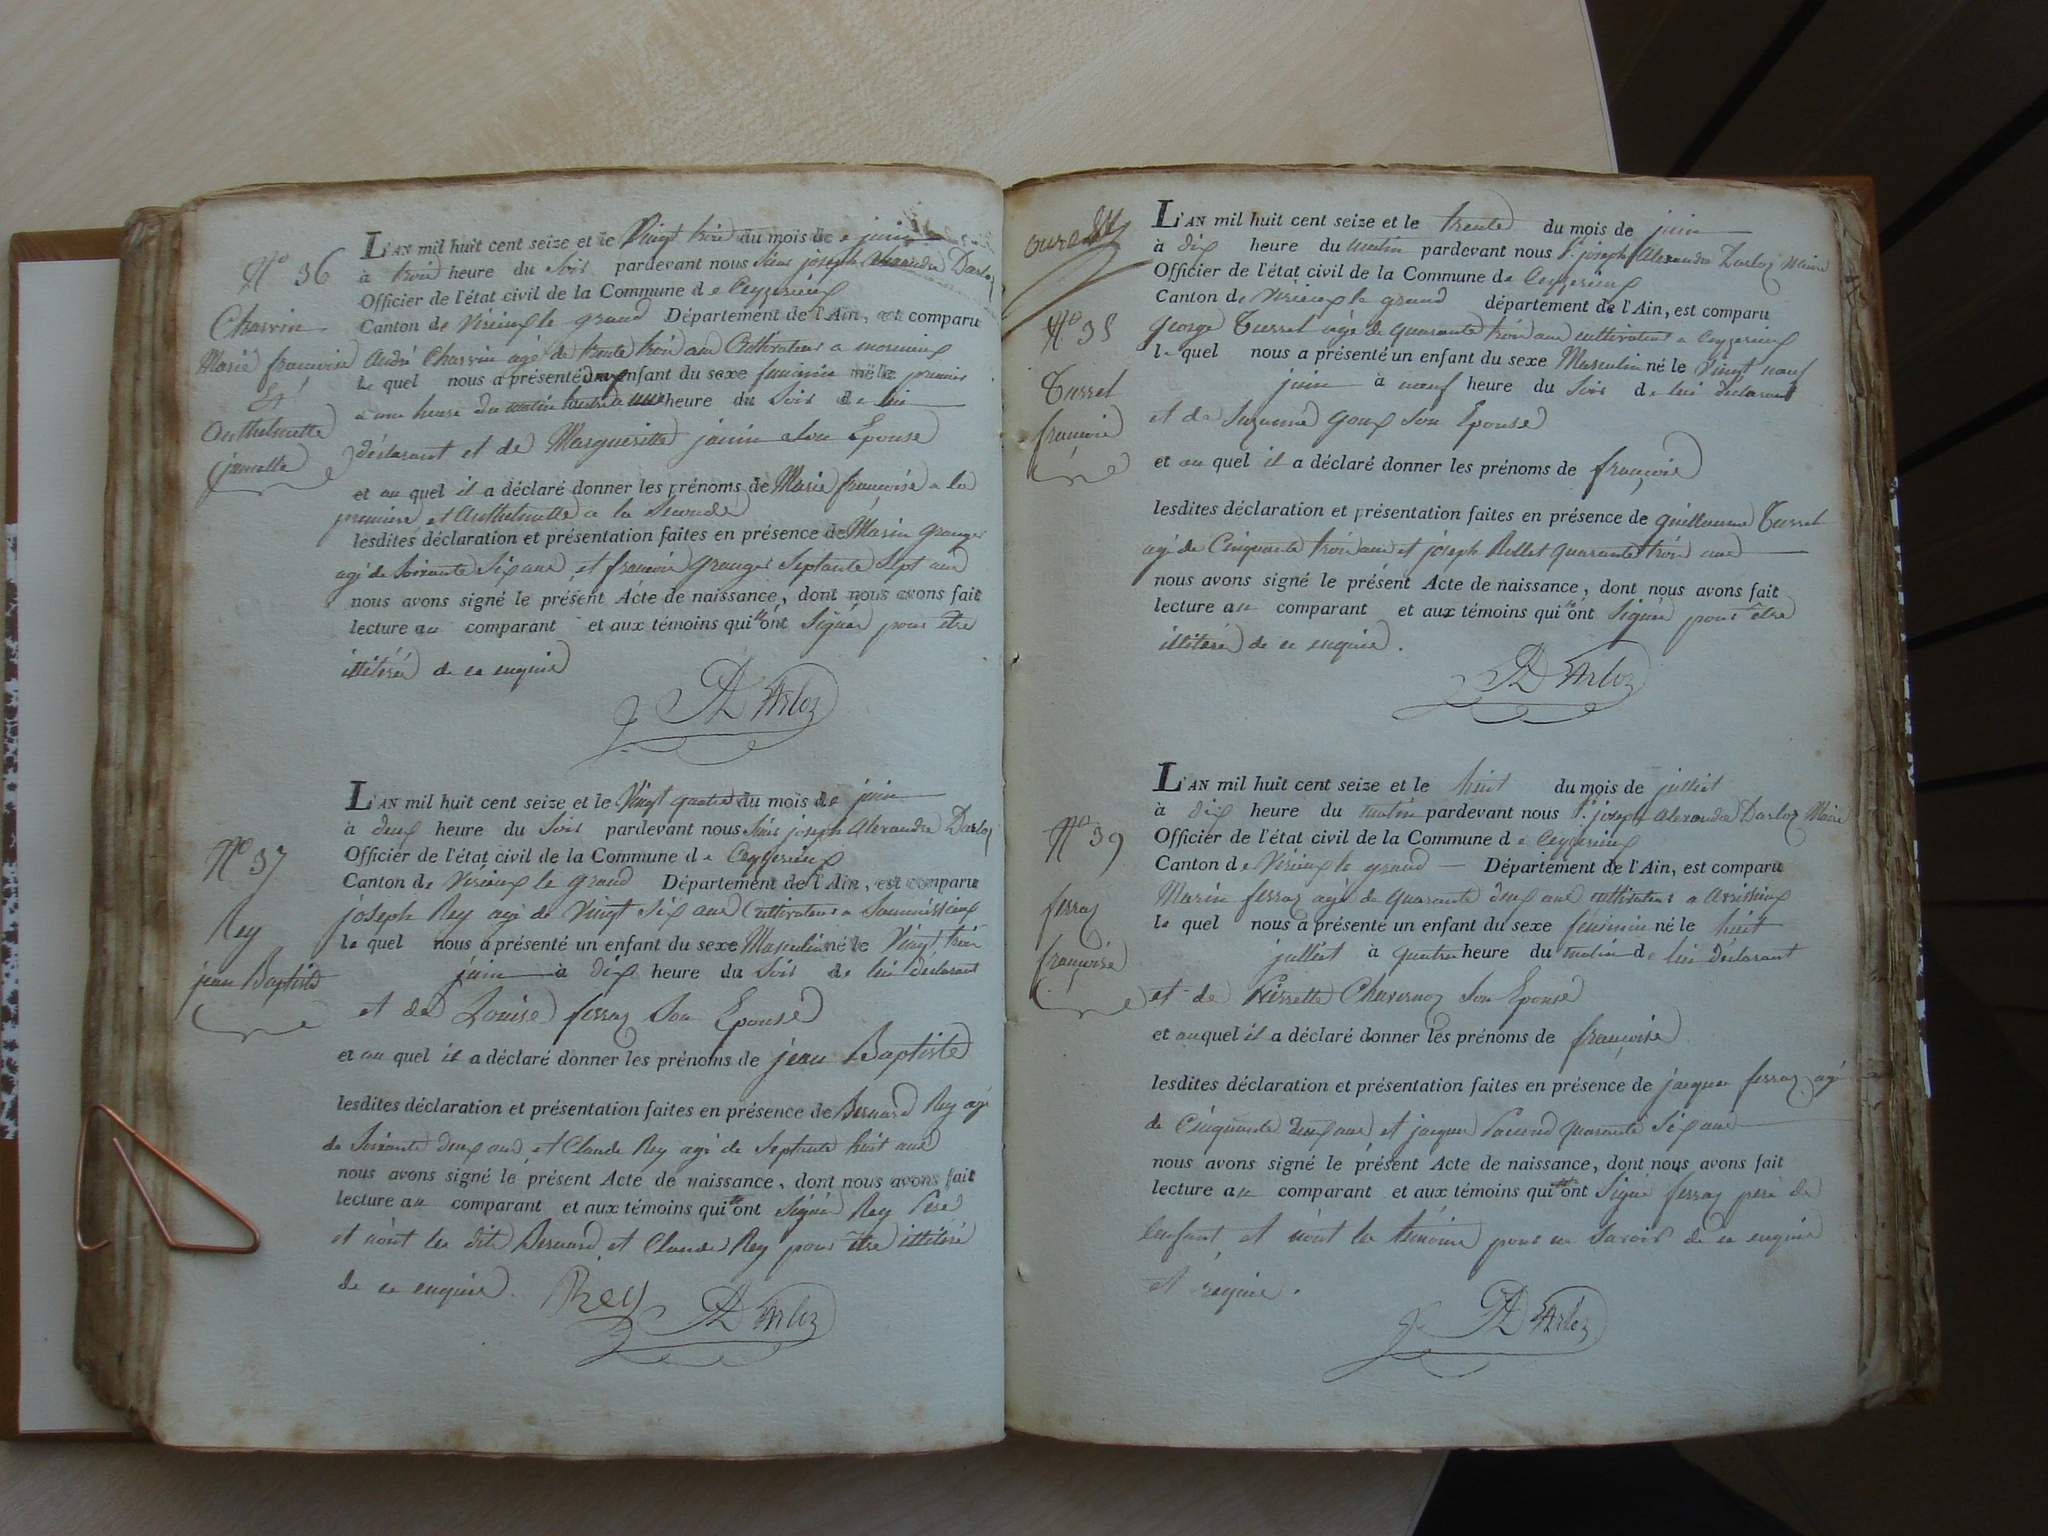 N.º 36
Charvin
Marie françoise
Et
Anthelmette
jumelle
L'AN mil huit cent seize et le Vingt trois du mois de juin
à trois heure du Soir pardevant nous Sieur joseph Alexandre Darloz
Officier de l'état civil de la Commune de Ceyzerieux
Canton de Virieux le grand Département de l'Ain, est comparu
André Charvin agé de trente trois ans Cultivateur a
le quel nous a présenté deux enfant du sexe feminin né le premier
a une heure du matin heure du Soir de lui
déclarant et de Marguerite janin Son Epouse
et au quel il a déclaré donner les prénoms de Marie françoise a la
premiere et Anthelmette a la Seconde
lesdites déclaration et présentation faites en présence de Marin Granger
agé de Soixante Six ans et francois Granger Septante Sept ans
nous avons signé le présent Acte de naissance, dont nous avons fait
lecture au comparant et aux témoins qui n'ont Signés pour être
illitérés de ce enquis
DArloz
N.º 37
Rey
jean Baptiste
L'AN mil huit cent seize et le Vingt quatre du mois de juin
à deux heure du Soir pardevant nous Sieur joseph Alexandre Darloz
Officier de l'état civil de la Commune de Ceyzerieux
Canton de Virieux le grand Département de l'Ain, est comparu
joseph Rey agé de Vingt Six ans Cultivateur a
le quel nous a présenté un enfant du sexe Masculin né le Vingt trois
juin à dix heure du Soir de lui déclarant
et de Louise ferraz Son Epouse
et au quel il a déclaré donner les prénoms de jean Baptiste
lesdites déclaration et présentation faites en présence de Bernard Rey agé
de Soixante deux ans et Claude Rey agé de Septante huit ans
nous avons signé le présent Acte de naissance, dont nous avons fait
lecture au comparant et aux témoins qui ont Signés Rey Pere
et n'ont les dits Bernard et Claude Rey pour être illitéré
de ce enquis. Rey DArloz
N.º 38
Turrel
françois
L'AN mil huit cent seize et le trente du mois de juin
à dix heure du matin pardevant nous S.r joseph Alexandre Darloz Maire
Officier de l'état civil de la Commune de Ceyzerieux
Canton de Virieux le grand département de l'Ain, est comparu
george Turrel agé de quarante trois ans cultivateur a Ceyzerieux
le quel nous a présenté un enfant du sexe Masculin né le Vingt neuf
juin à neuf heure du Soir de lui déclarant
et de Suzanne goux Son Epouse
et au quel il a déclaré donner les prénoms de françois
lesdites déclaration et présentation faites en présence de guillaume Turrel
agé de Cinquante trois ans et joseph Rellet quarante trois ans
nous avons signé le présent Acte de naissance, dont nous avons fait
lecture au comparant et aux témoins qui n'ont Signés pour être
illitérés de ce enquis.
DArloz
N.º 39
ferraz
françoise
L'AN mil huit cent seize et le huit du mois de julliet
à dix heure du matin pardevant nous S.r joseph Alexandre Darloz Maire
Officier de l'état civil de la Commune de Ceyzerieux
Canton de Virieux le grand Département de l'Ain, est comparu
Marin ferraz agé de quarante deux ans cultivateur a Avrissieux
le quel nous a présenté un enfant du sexe feminin né le huit
julliet à quatre heure du matin de lui déclarant
et de Pierrette Chavernoz Son Epouse
et auquel il a déclaré donner les prénoms de françoise
lesdites déclaration et présentation faites en présence de jacques ferraz agé
de Cinquante deux ans et jacques quarante Six ans
nous avons signé le présent Acte de naissance, dont nous avons fait
lecture au comparant et aux témoins qui ont Signé ferraz pere de
lenfant et n'ont les témoins pour ne Savoir de ce enquis
et requis.
DArloz